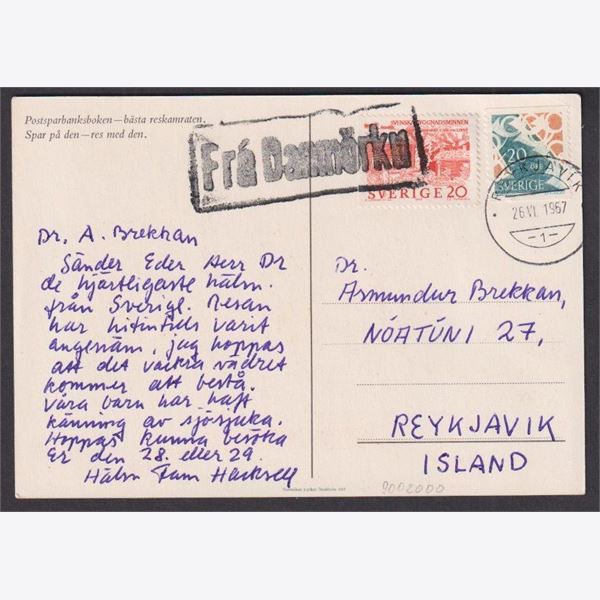 Postsparbanksboken — bästa reskamraten.
Spar på den — res med den.
Frá Danmörku
SVENSKA BYGNADSMINNEN
SVERIGE 20
20
SVERIGE
REYKJAVIK
26.VI. 1967
-1-
Dr. A. Brekkan
Sänder Eder Herr Dr
de hjärtligaste häln.
från Sverige. Resan
har hitintils varit
angenäm, jag hoppas
att det vackra vädret
kommer att bestå.
Våra barn har haft
känning av sjösjuka.
Hoppas kunna besöka
Er den 28. eller 29.
Häln Fam
Dr.
Asmundur Brekkan,
NÓATÚNI 27,
REYKJAVIK
ISLAND
9002000